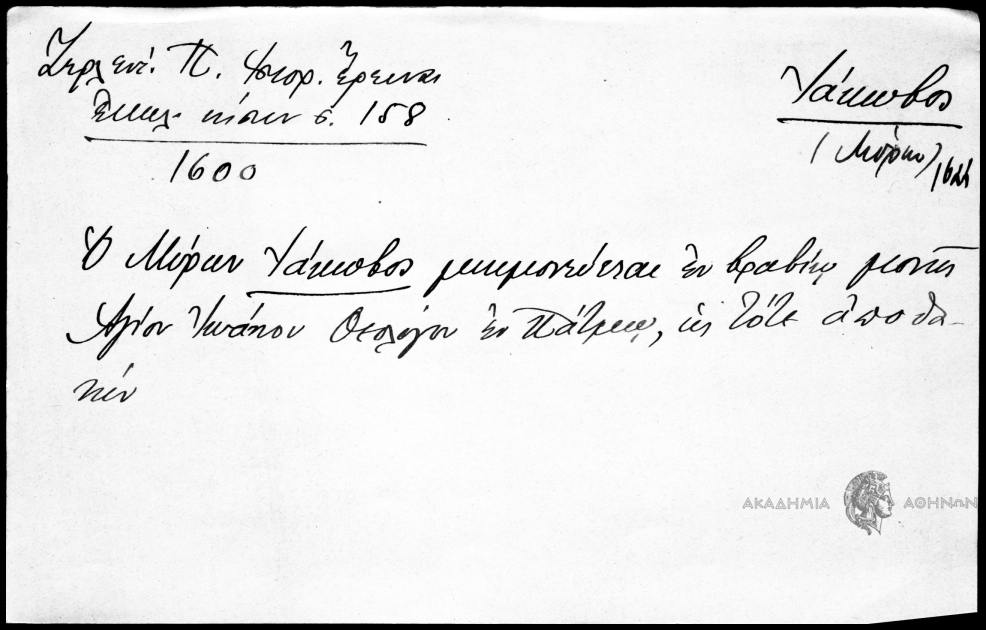 Ζερλεντ. Π. Ἱστορ. Ἔρευναι
Ἐκκλ. νήσων σ. 158
1600
Ἰάκωβος
(Μύρων) 1622
Ὁ Μύρων Ἰάκωβος μνημονεύεται ἐν βραβίῳ μονῆς
Ἁγίου Ἰωάννου Θεολόγου ἐν Πάτμῳ, ὡς τότε ἀποθα-
νών
ΑΚΑΔΗΜΙΑ ΑΘΗΝΩΝ